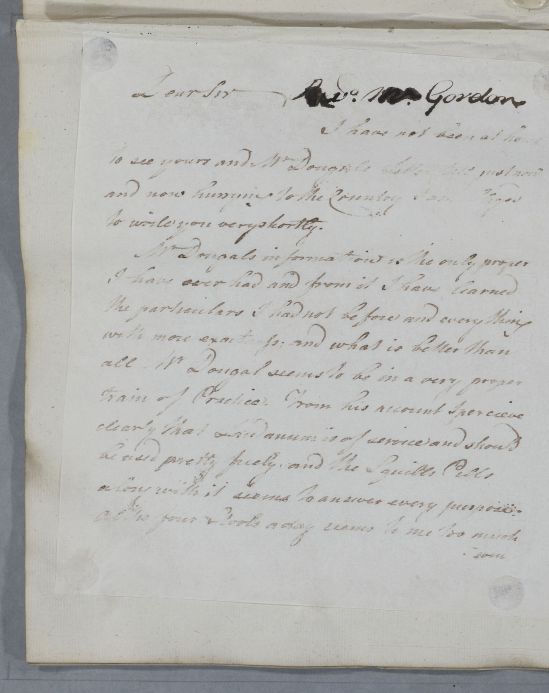 Dear Sir Revd. Mr. Gordon
I have not been at home
to see yours and Mr Dougals just now
and now hurrying to the Country I am
to write you very shortly.
Mr Dougals information is the only proper
I have ever had and from it I have learned
the particulars I had not before and every thing
with more and what is better than
all Mr Dougal seems to be in a very proper
train of Practice. From his account I percieve
clearly that Laudanum is of service and should
be used pretty freely, and the Squills Pills
along with it seems to answer every purpose.
four Stools a day seems to me too much